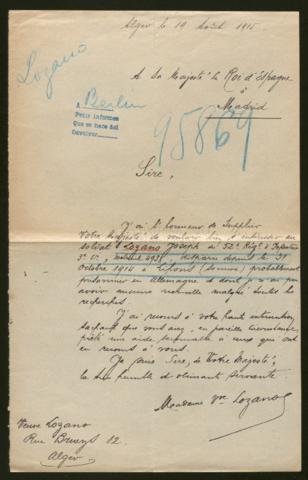 Alger le 19 Août 1915
Lozano
A Sa Majesté Le Roi d'Espagne
à
Madrid
A Berlin
Pedir informes
95869
Sire,
J'ai l'honneur de supplier
Votre Majesté de vouloir bien s'intéresser au
soldat Lozano Joseph du 52e Régt d'Infanterie
3e Cie, disparu depuis le 31
Octobre 1914 à Lihons (Somme) probablement
prisonnier en Allemagne et dont je n'ai pu
avoir aucune nouvelle malgré toutes les
recherches.
J'ai recours à votre haute intervention,
sachant que vous avez, en pareille circonstance,
prêté une aide à ceux qui ont
eu recours à vous.
Je suis Sire, de Votre Majesté,
la très humble et obéissante servante.
Madame Vve Lozano
Veuve Lozano
Rue Brueys 12
Alger